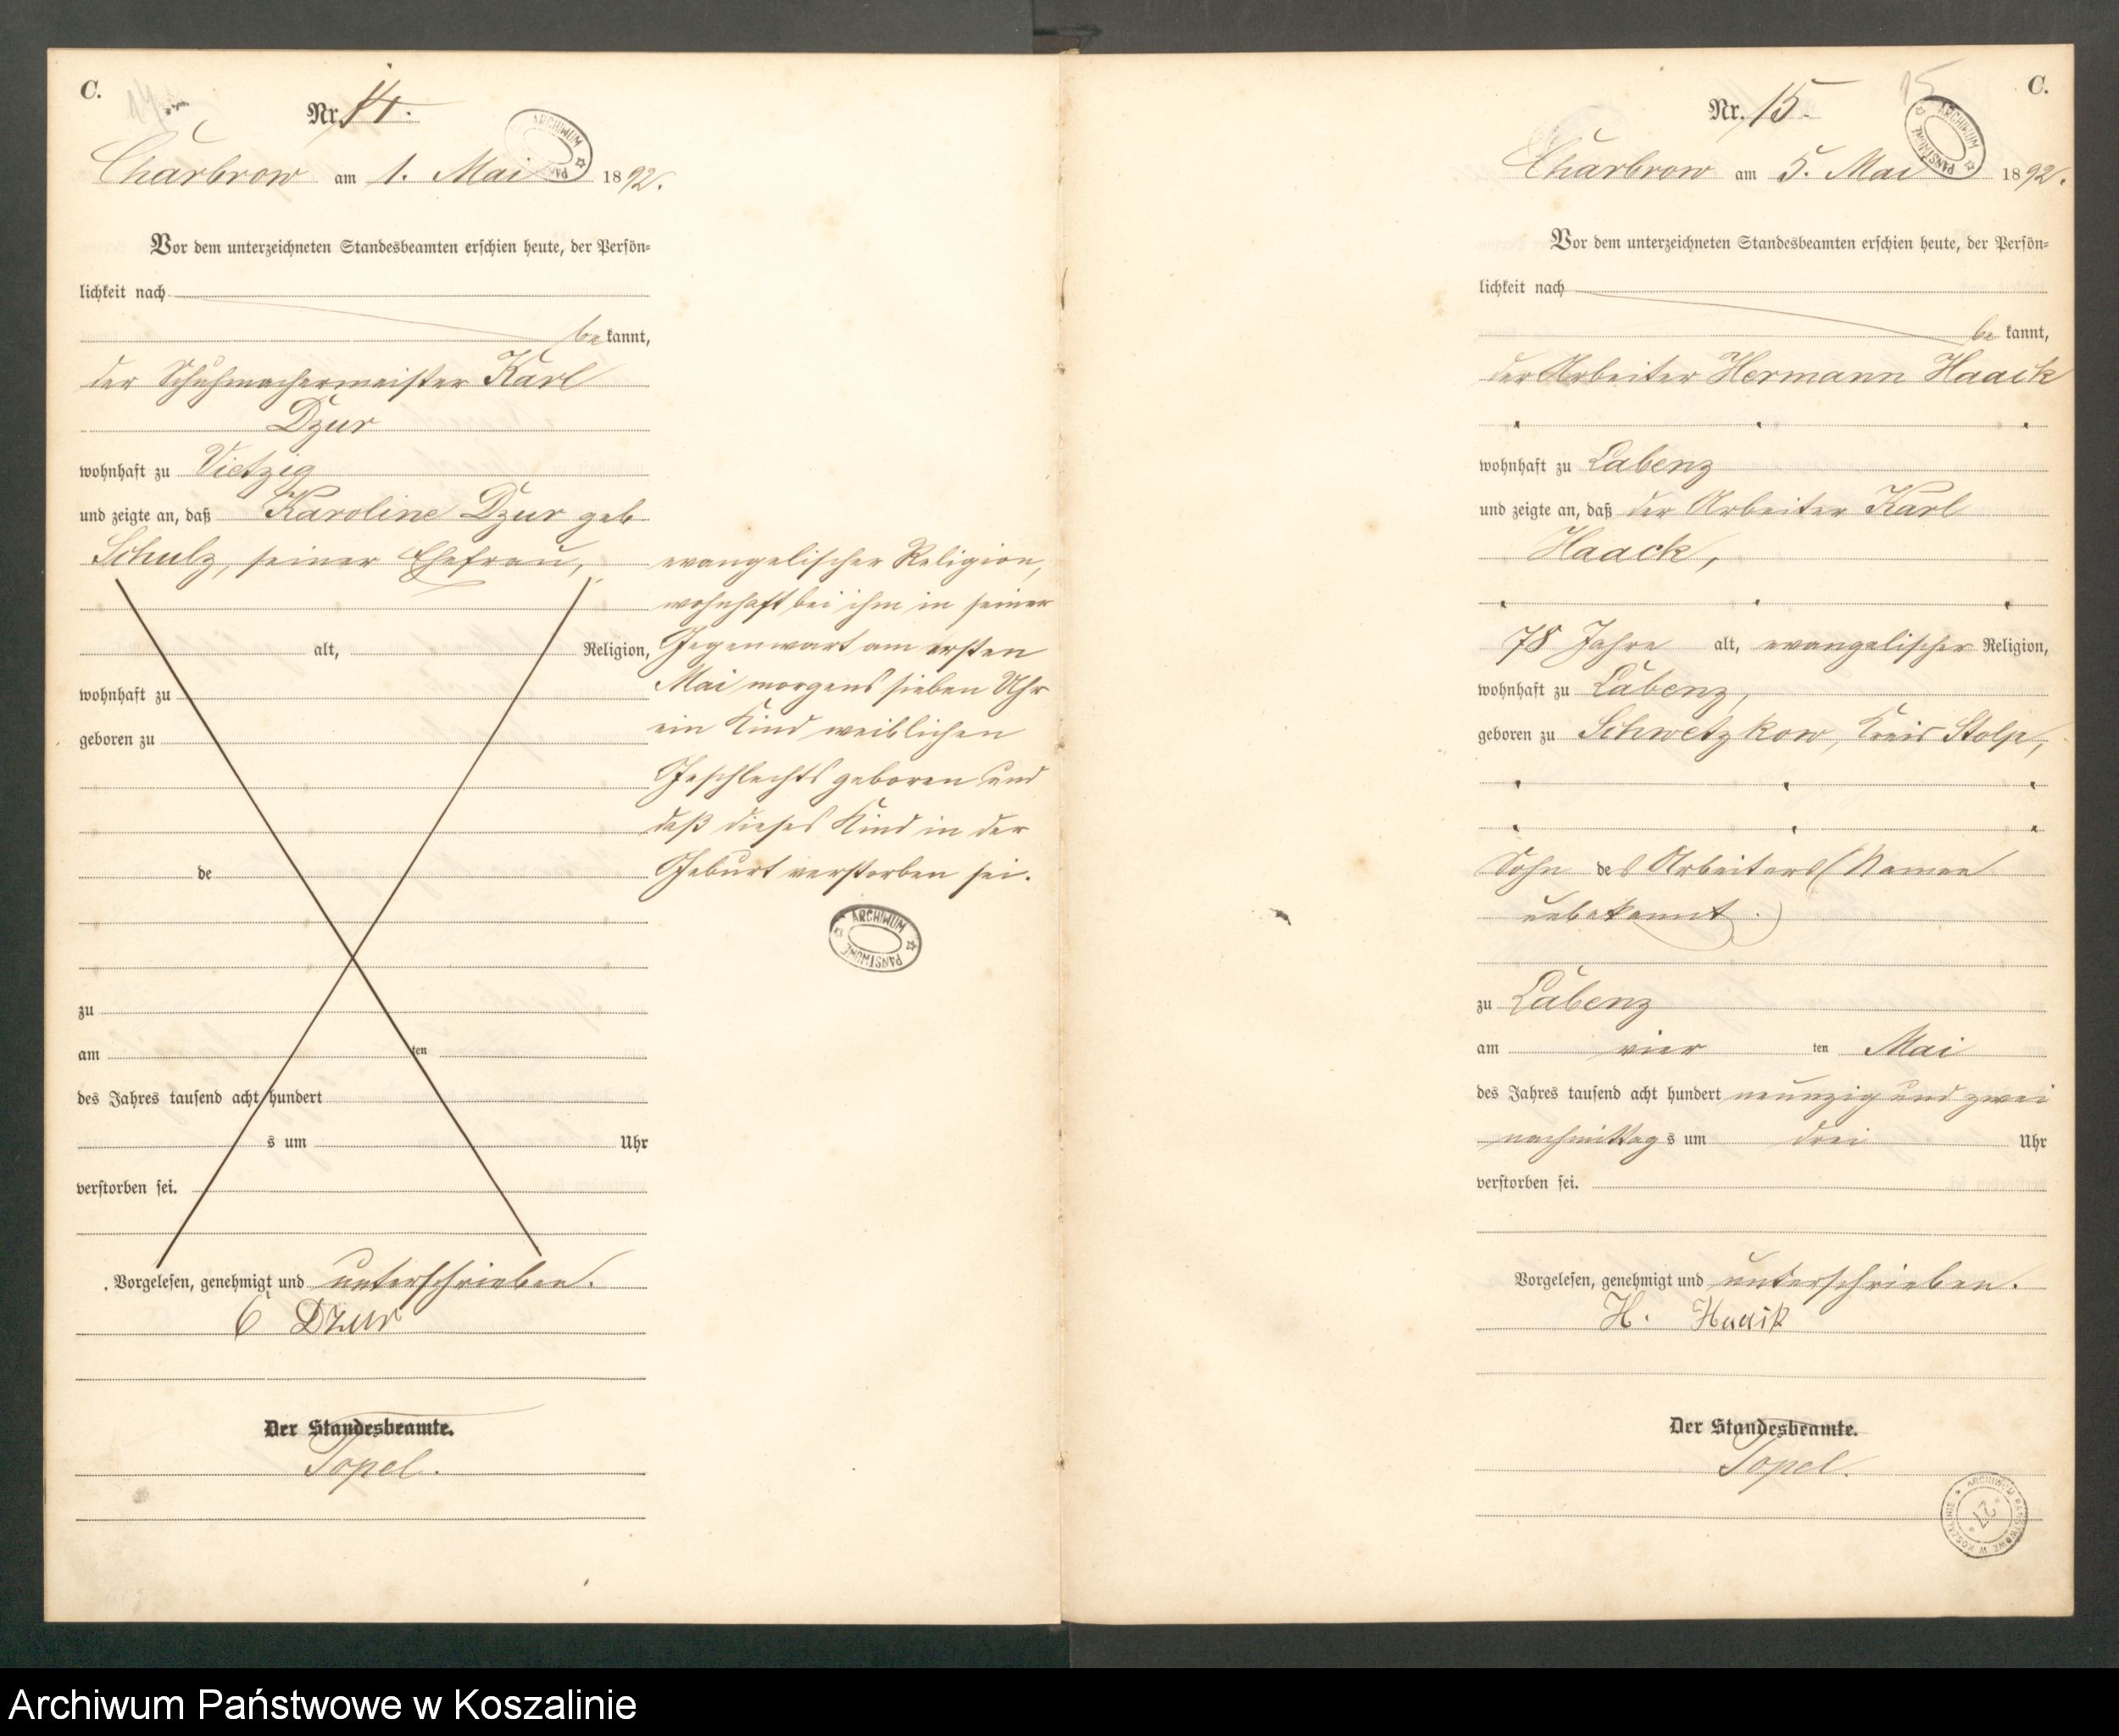 C.
14
Nr. 14.
ARCHIWUM PAŃSTWOWE
Charbrow am 1. Mai 1892.
Vor dem unterzeichneten Standesbeamten erschien heute, der Persön-
lichkeit nach
be kannt,
der Schuhmachermeister Karl
Dzur
wohnhaft zu Vietzig
und zeigte an, daß Karoline Dzur geb
Schulz, seiner Ehefrau,
alt, Religion,
wohnhaft zu
geboren zu
de
zu
am ten
des Jahres tausend acht hundert
s um Uhr
verstorben sei.
evangelischer Religion,
wohnhaft bei ihm in seiner
Gegenwart am ersten
Mai morgens sieben Uhr
ein Kind weiblichen
Geschlechts geboren und
daß dieses Kind in der
Geburt verstorben sei.
ARCHIWUM PAŃSTWOWE
Vorgelesen, genehmigt und unterschrieben.
C Dzur
Der Standesbeamte.
Topel.
15
C.
Nr. 15.
ARCHIWUM PAŃSTWOWE
Charbrow am 5. Mai 1892.
Vor dem unterzeichneten Standesbeamten erschien heute, der Persön-
lichkeit nach
be kannt,
der Arbeiter Hermann Haack
wohnhaft zu Labenz
und zeigte an, daß der Arbeiter Karl
Haack,
78 Jahre alt, evangelischer Religion,
wohnhaft zu Labenz,
geboren zu Schwetzkow, Kreis Stolp,
Sohn des Arbeiters (Namen
unbekannt.)
zu Labenz
am vier ten Mai
des Jahres tausend acht hundert neunzig und zwei
nachmittag s um drei Uhr
verstorben sei.
Vorgelesen, genehmigt und unterschrieben.
H. Haack
Der Standesbeamte.
Topel.
ARCHIWUM PAŃSTWOWE W KOSZALINIE
27
Archiwum Państwowe w Koszalinie